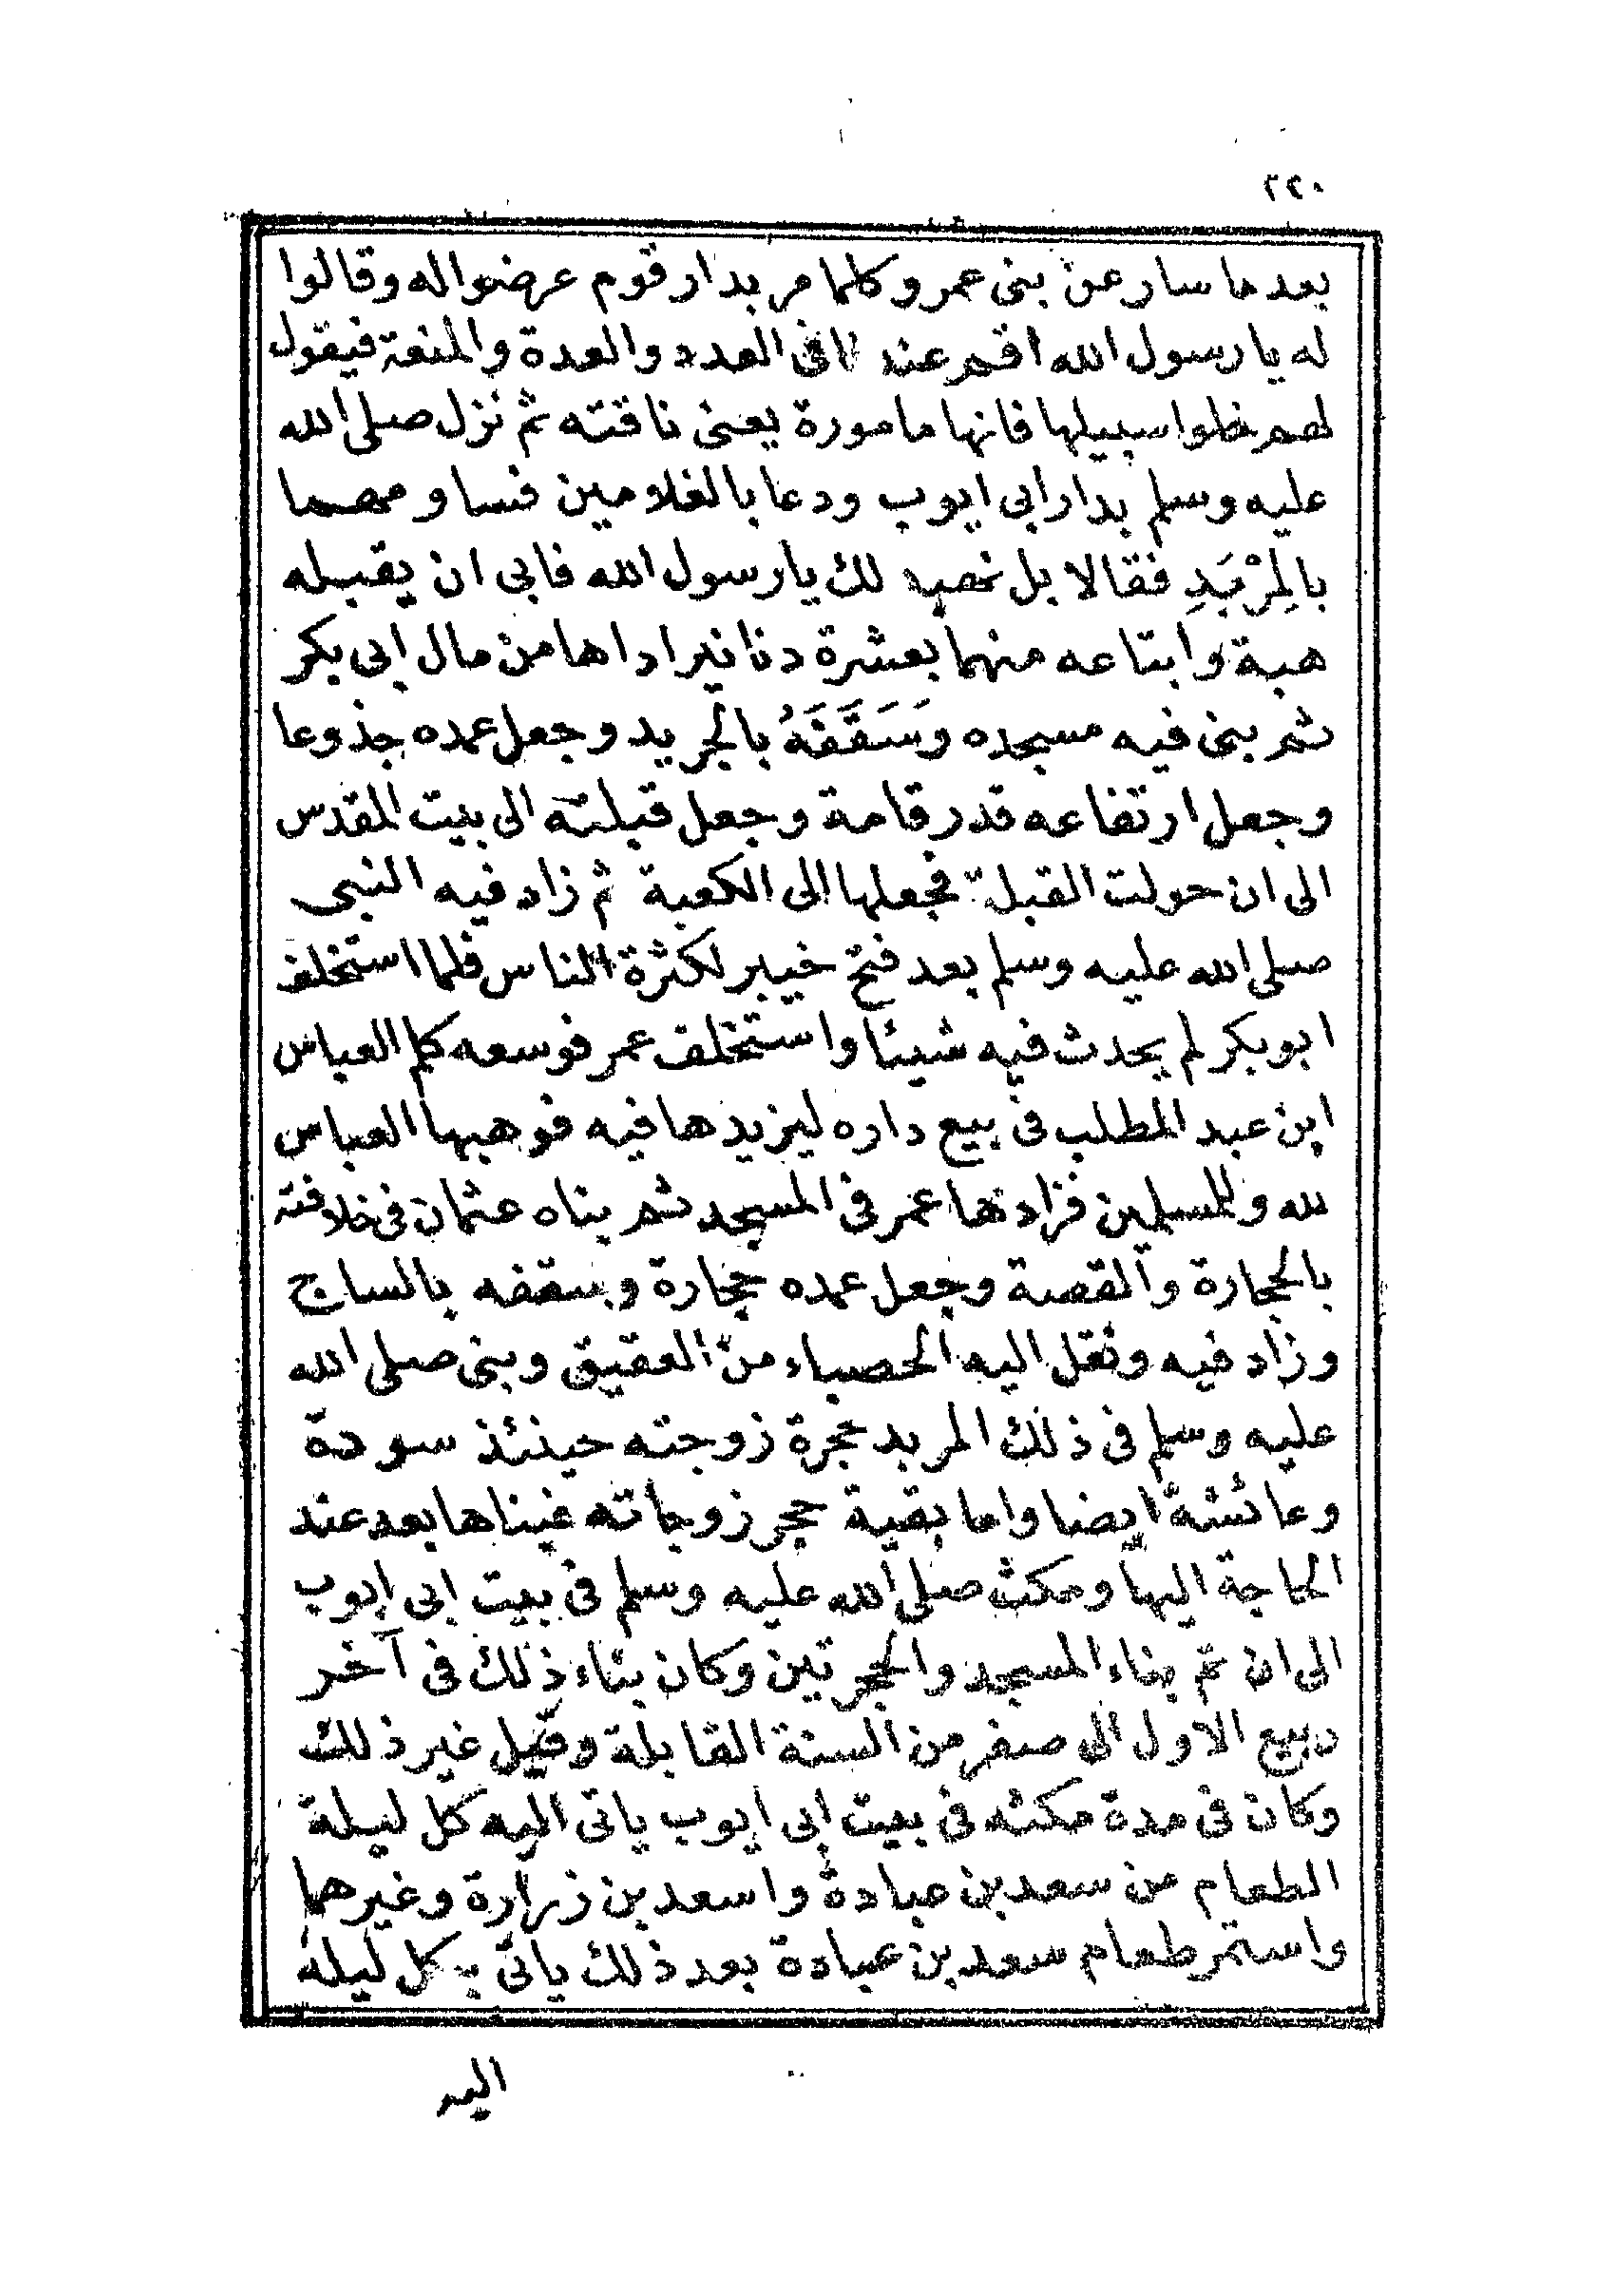 ٢٢٠
بعد ما سار عن بنى عمرو كلما مر بدار قوم عرضوا له وقالوا
له يا رسول الله اقم عندنا فى العدد والعدة والمنعة فيقول
لهم خلوا سبيلها فانها مامورة يعنى ناقته ثم نزل صلى الله
عليه وسلم بدار ابى ايوب ودعا بالغلامين فساومهما
بالمِرْبَدِ فقالا بل نهبه لك يا رسول الله فابى ان يقبله
هبة وابتاعه منهما بعشرة دنانير اداها من مال ابى بكر
ثم بنى فيه مسجده وَسَقَّفَهُ بالجريد وجعل عمده جذوعا
وجعل ارتفاعه قدر قامة وجعل قبلته الى بيت المقدس
الى ان حولت القبلة فجعلها الى الكعبة ثم زاد فيه النبى
صلى الله عليه وسلم بعد فتح خيبر لكثرة الناس فلما استخلف
ابو بكر لم يحدث فيه شيئا واستخلف عمر فوسعه كلم العباس
ابن عبد المطلب فى بيع داره ليزيدها فيه فوهبها العباس
لله وللمسلمين فزادها عمر فى المسجد ثم بناه عثمان فى خلافته
بالحجارة والقصة وجعل عمده حجارة وسقفه بالساج
وزاد فيه ونقل اليه الحصباء من العقيق وبنى صلى الله
عليه وسلم فى ذلك المربد حجرة زوجته حينئذ سودة
وعائشة ايضا واما بقية حجر زوجاته فبناها بعد عند
الحاجة اليها ومكث صلى الله عليه وسلم فى بيت ابى ايوب
الى ان تم بناء المسجد والحجرتين وكان بناء ذلك فى آخر
ربيع الاول الى صفر من السنة القابلة وقيل غير ذلك
وكان فى مدة مكثه فى بيت ابى ايوب ياتى اليه كل ليلة
الطعام من سعد بن عبادة واسعد بن زرارة وغيرهما
واستمر طعام سعد بن عبادة بعد ذلك ياتى به كل ليلة
اليه